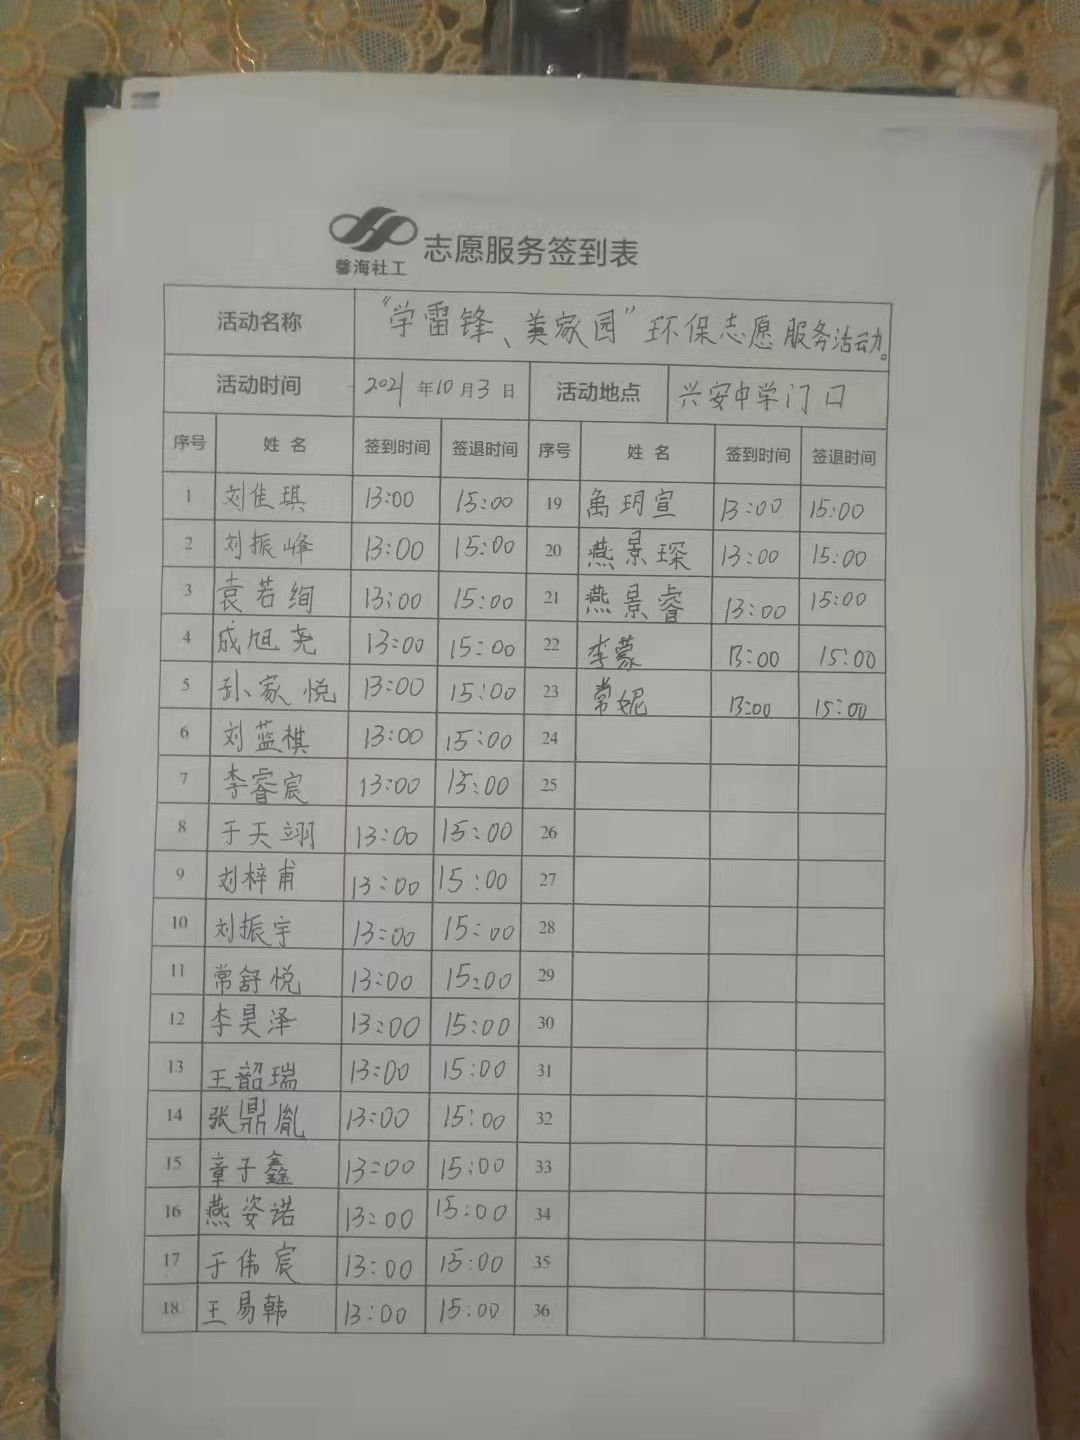 馨海社工 志愿服务签到表
活动名称 “学雷锋、美家园”环保志愿服务活动。
活动时间 2021年10月3日 活动地点 兴安中学门口
序号 姓名 签到时间 签退时间 序号 姓名 签到时间 签退时间
1 刘佳琪 13:00 15:00 19 禹玥宣 13:00 15:00
2 刘振峰 13:00 15:00 20 燕景琛 13:00 15:00
3 袁若绚 13:00 15:00 21 燕景睿 13:00 15:00
4 成旭尧 13:00 15:00 22 李蒙 13:00 15:00
5 孙家悦 13:00 15:00 23 常妮 13:00 15:00
6 刘蓝棋 13:00 15:00 24
7 李睿宸 13:00 15:00 25
8 于天翊 13:00 15:00 26
9 刘梓甫 13:00 15:00 27
10 刘振宇 13:00 15:00 28
11 常舒悦 13:00 15:00 29
12 李昊泽 13:00 15:00 30
13 王韶瑞 13:00 15:00 31
14 张鼎胤 13:00 15:00 32
15 章子鑫 13:00 15:00 33
16 燕姿诺 13:00 15:00 34
17 于伟宸 13:00 15:00 35
18 王易韩 13:00 15:00 36